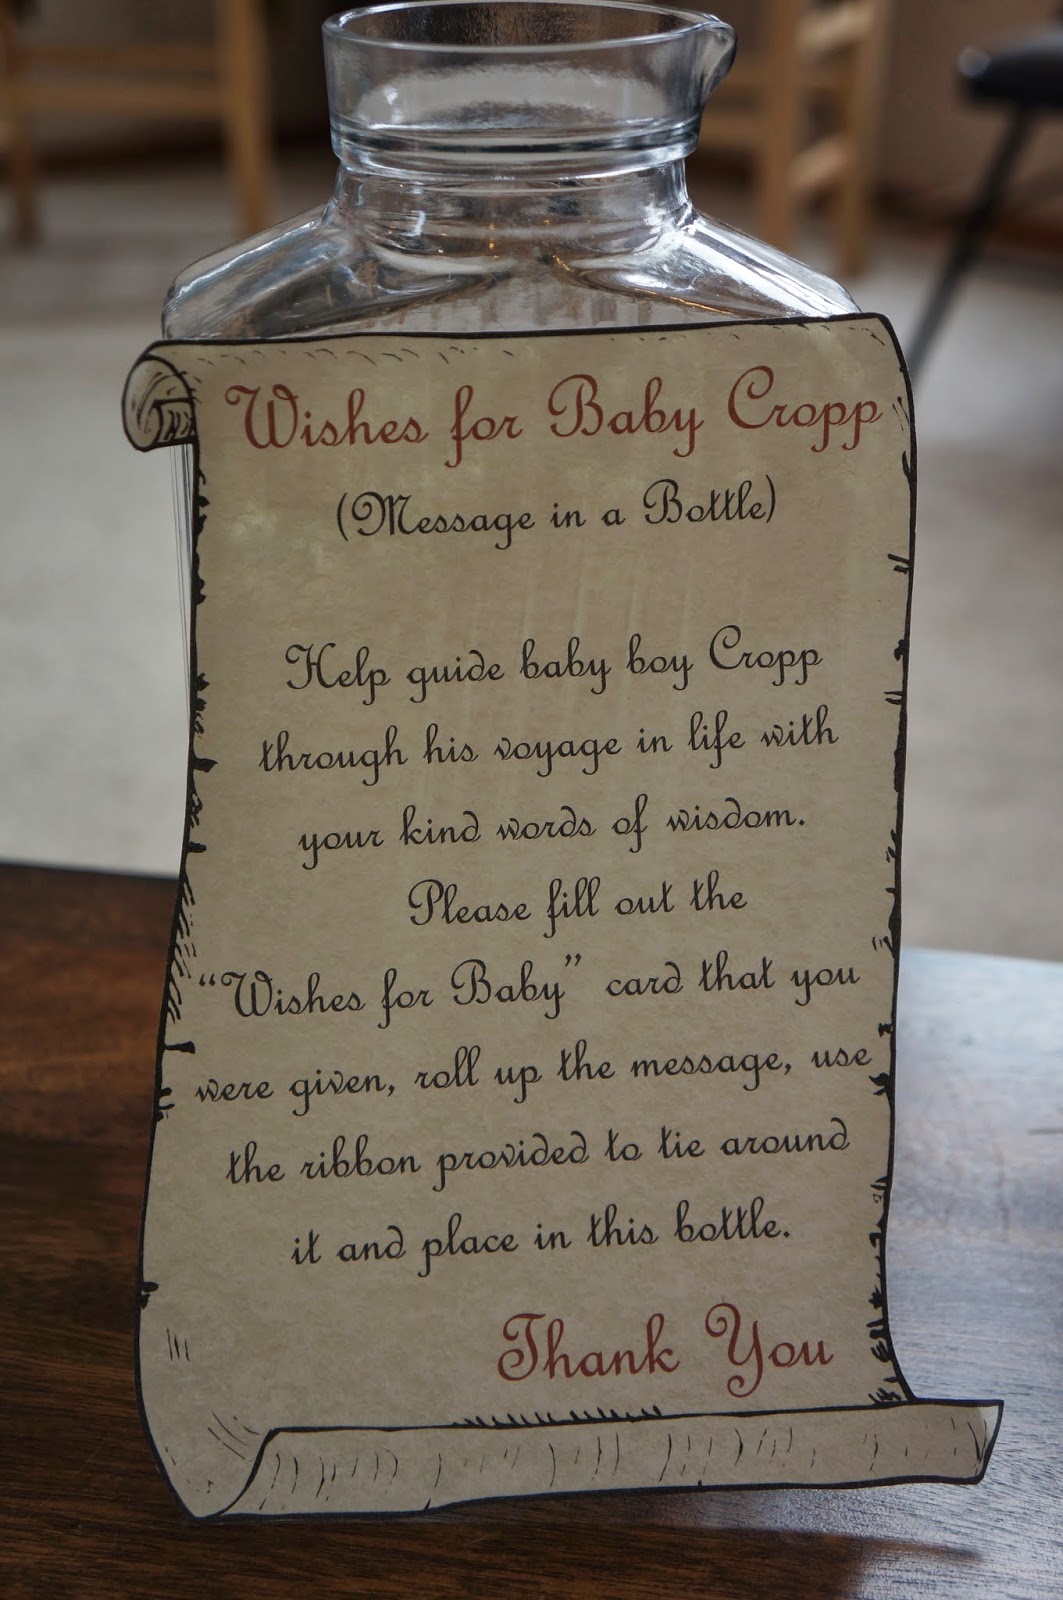 Wishes for Baby Cropp
(Message in a Bottle)
Help guide baby boy Cropp
through his voyage in life with
your kind words of wisdom.
Please fill out the
“Wishes for Baby” card that you
were given, roll up the message, use
the ribbon provided to tie around
it and place in this bottle.
Thank You